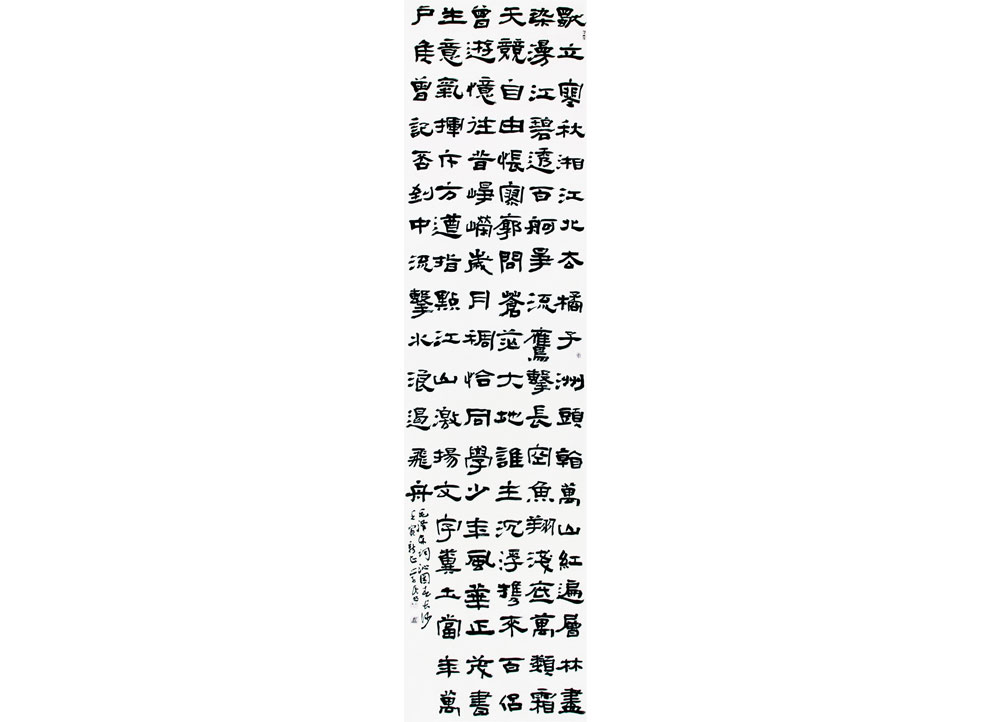 獨立寒秋湘江北去橘子洲頭看萬山紅遍層林盡
染漫江碧透百舸爭流鷹擊長空魚翔淺底萬類霜
天競自由悵寥廓問蒼茫大地誰主沉浮攜來百侶
曾遊憶往昔崢嶸歲月稠恰同學少年風華正茂書
生意氣揮斥方遒指點江山激揚文字糞土當年萬
户侯曾記否到中流擊水浪遏飛舟
毛澤東詞沁園春長沙
壬寅新正